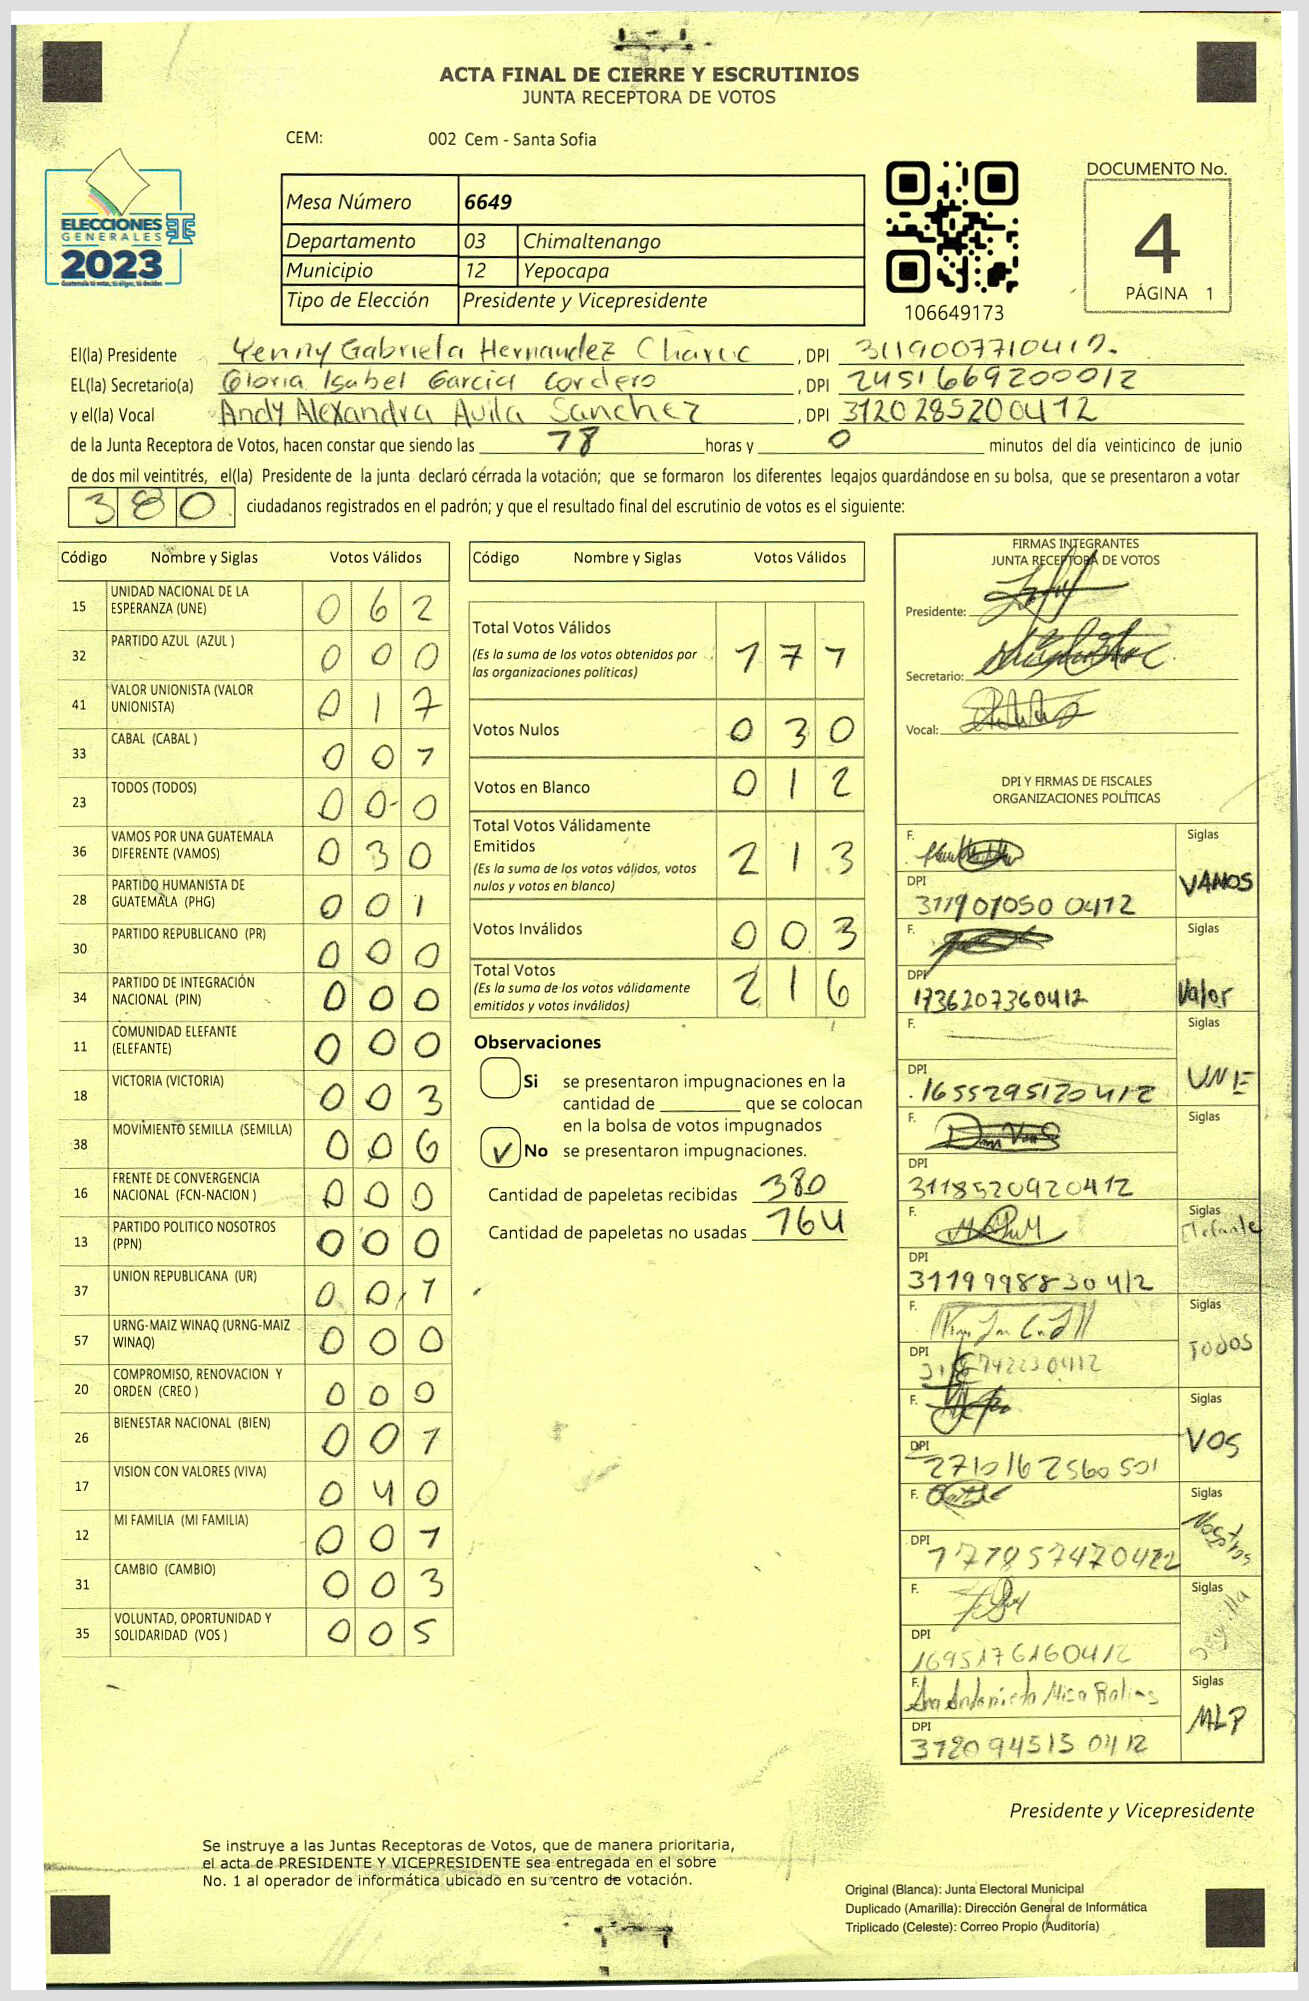 ACTA FINAL DE CIERRE Y ESCRUTINIOS
JUNTA RECEPTORA DE VOTOS
CEM: 002 Cem - Santa Sofia
ELECCIONES
GENERALES
2023
Mesa Número 6649
Departamento 03 Chimaltenango
Municipio 12 Yepocapa
Tipo de Elección Presidente y Vicepresidente
106649173
DOCUMENTO No.
4
PÁGINA 1
El(la) Presidente Yenny Gabriela Hernandez , DPI
EL(la) Secretario(a) Gloria Isabel Garcia Cordero , DPI 2451669200012
y el(la) Vocal Andy Alexandra Avila Sanchez , DPI 3120285200412
de la Junta Receptora de Votos, hacen constar que siendo las 18 horas y 0 minutos del día veinticinco de junio
de dos mil veintitrés, el(la) Presidente de la junta declaró cerrada la votación; que se formaron los diferentes legajos guardándose en su bolsa, que se presentaron a votar
380 ciudadanos registrados en el padrón; y que el resultado final del escrutinio de votos es el siguiente:
Código Nombre y Siglas Votos Válidos
15 UNIDAD NACIONAL DE LA ESPERANZA (UNE) 0 6 2
32 PARTIDO AZUL (AZUL ) 0 0 0
41 VALOR UNIONISTA (VALOR UNIONISTA) 0 1 7
33 CABAL (CABAL ) 0 0 7
23 TODOS (TODOS) 0 0 0
36 VAMOS POR UNA GUATEMALA DIFERENTE (VAMOS) 0 3 0
28 PARTIDO HUMANISTA DE GUATEMALA (PHG) 0 0 1
30 PARTIDO REPUBLICANO (PR) 0 0 0
34 PARTIDO DE INTEGRACIÓN NACIONAL (PIN) 0 0 0
11 COMUNIDAD ELEFANTE (ELEFANTE) 0 0 0
18 VICTORIA (VICTORIA) 0 0 3
38 MOVIMIENTO SEMILLA (SEMILLA) 0 0 6
16 FRENTE DE CONVERGENCIA NACIONAL (FCN-NACION ) 0 0 0
13 PARTIDO POLITICO NOSOTROS (PPN) 0 0 0
37 UNION REPUBLICANA (UR) 0 0 1
57 URNG-MAIZ WINAQ (URNG-MAIZ WINAQ) 0 0 0
20 COMPROMISO, RENOVACION Y ORDEN (CREO ) 0 0 0
26 BIENESTAR NACIONAL (BIEN) 0 0 1
17 VISION CON VALORES (VIVA) 0 4 0
12 MI FAMILIA (MI FAMILIA) 0 0 1
31 CAMBIO (CAMBIO) 0 0 3
35 VOLUNTAD, OPORTUNIDAD Y SOLIDARIDAD (VOS ) 0 0 5
Código Nombre y Siglas Votos Válidos
Total Votos Válidos 1 7 1
(Es la suma de los votos obtenidos por
las organizaciones políticas)
Votos Nulos 0 3 0
Votos en Blanco 0 1 2
Total Votos Válidamente
Emitidos 2 1 3
(Es la suma de los votos válidos, votos
nulos y votos en blanco)
Votos Inválidos 0 0 3
Total Votos 2 1 6
(Es la suma de los votos válidamente
emitidos y votos inválidos)
Observaciones
Si se presentaron impugnaciones en la
cantidad de ________ que se colocan
en la bolsa de votos impugnados
✓ No se presentaron impugnaciones.
Cantidad de papeletas recibidas 380
Cantidad de papeletas no usadas 164
FIRMAS INTEGRANTES
JUNTA RECEPTORA DE VOTOS
Presidente:
Secretario:
Vocal:
DPI Y FIRMAS DE FISCALES
ORGANIZACIONES POLÍTICAS
F. Siglas
VAMOS
DPI 3119010500412
F. Siglas
Valor
DPI 1736207360412
F. Siglas
UNE
DPI 1655295120412
F. Siglas
DPI 3118520920412
F. Siglas
Elefante
DPI 3119998830412
F. Siglas
TODOS
DPI
F. Siglas
VOS
DPI 2710162560501
F. Siglas
Nosotros
DPI
F. Siglas
DPI 1695176160412
F. Siglas
MLP
DPI 3120945150412
Presidente y Vicepresidente
Se instruye a las Juntas Receptoras de Votos, que de manera prioritaria,
el acta de PRESIDENTE Y VICEPRESIDENTE sea entregada en el sobre
No. 1 al operador de informática ubicado en su centro de votación.
Original (Blanca): Junta Electoral Municipal
Duplicado (Amarilla): Dirección General de Informática
Triplicado (Celeste): Correo Propio (Auditoría)